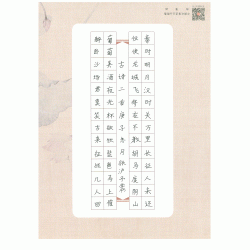 秦时明月汉时关万里长征人未还
但使龙城飞将在不教胡马度阴山
古诗二首庚子冬月
葡萄美酒夜光杯欲饮琵琶马上催
醉卧沙场君莫笑古来征战几人回